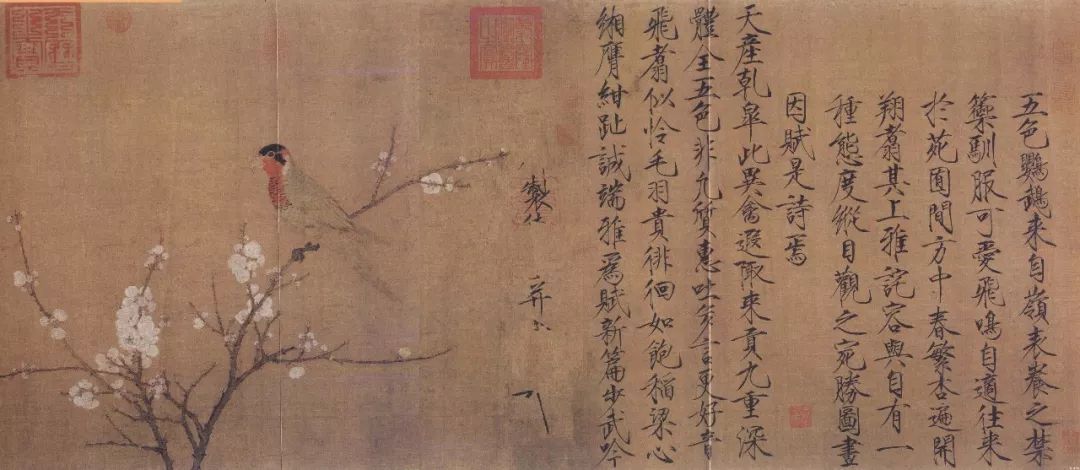 五色鸚鵡来自嶺表養之禁
籞馴服可愛飛鳴自適往来
於苑囿間方中春繁杏遍開
翔翥其上雅詫容與自有一
種態度縱目觀之宛勝圖畫
因賦是詩焉
天產乾皐此異禽遐陬来貢九重深
體全五色非凡質惠吐多言更好音
飛翥似怜毛羽貴徘徊如飽稻粱心
緗膺紺趾誠端雅爲賦新篇步武吟
製 并